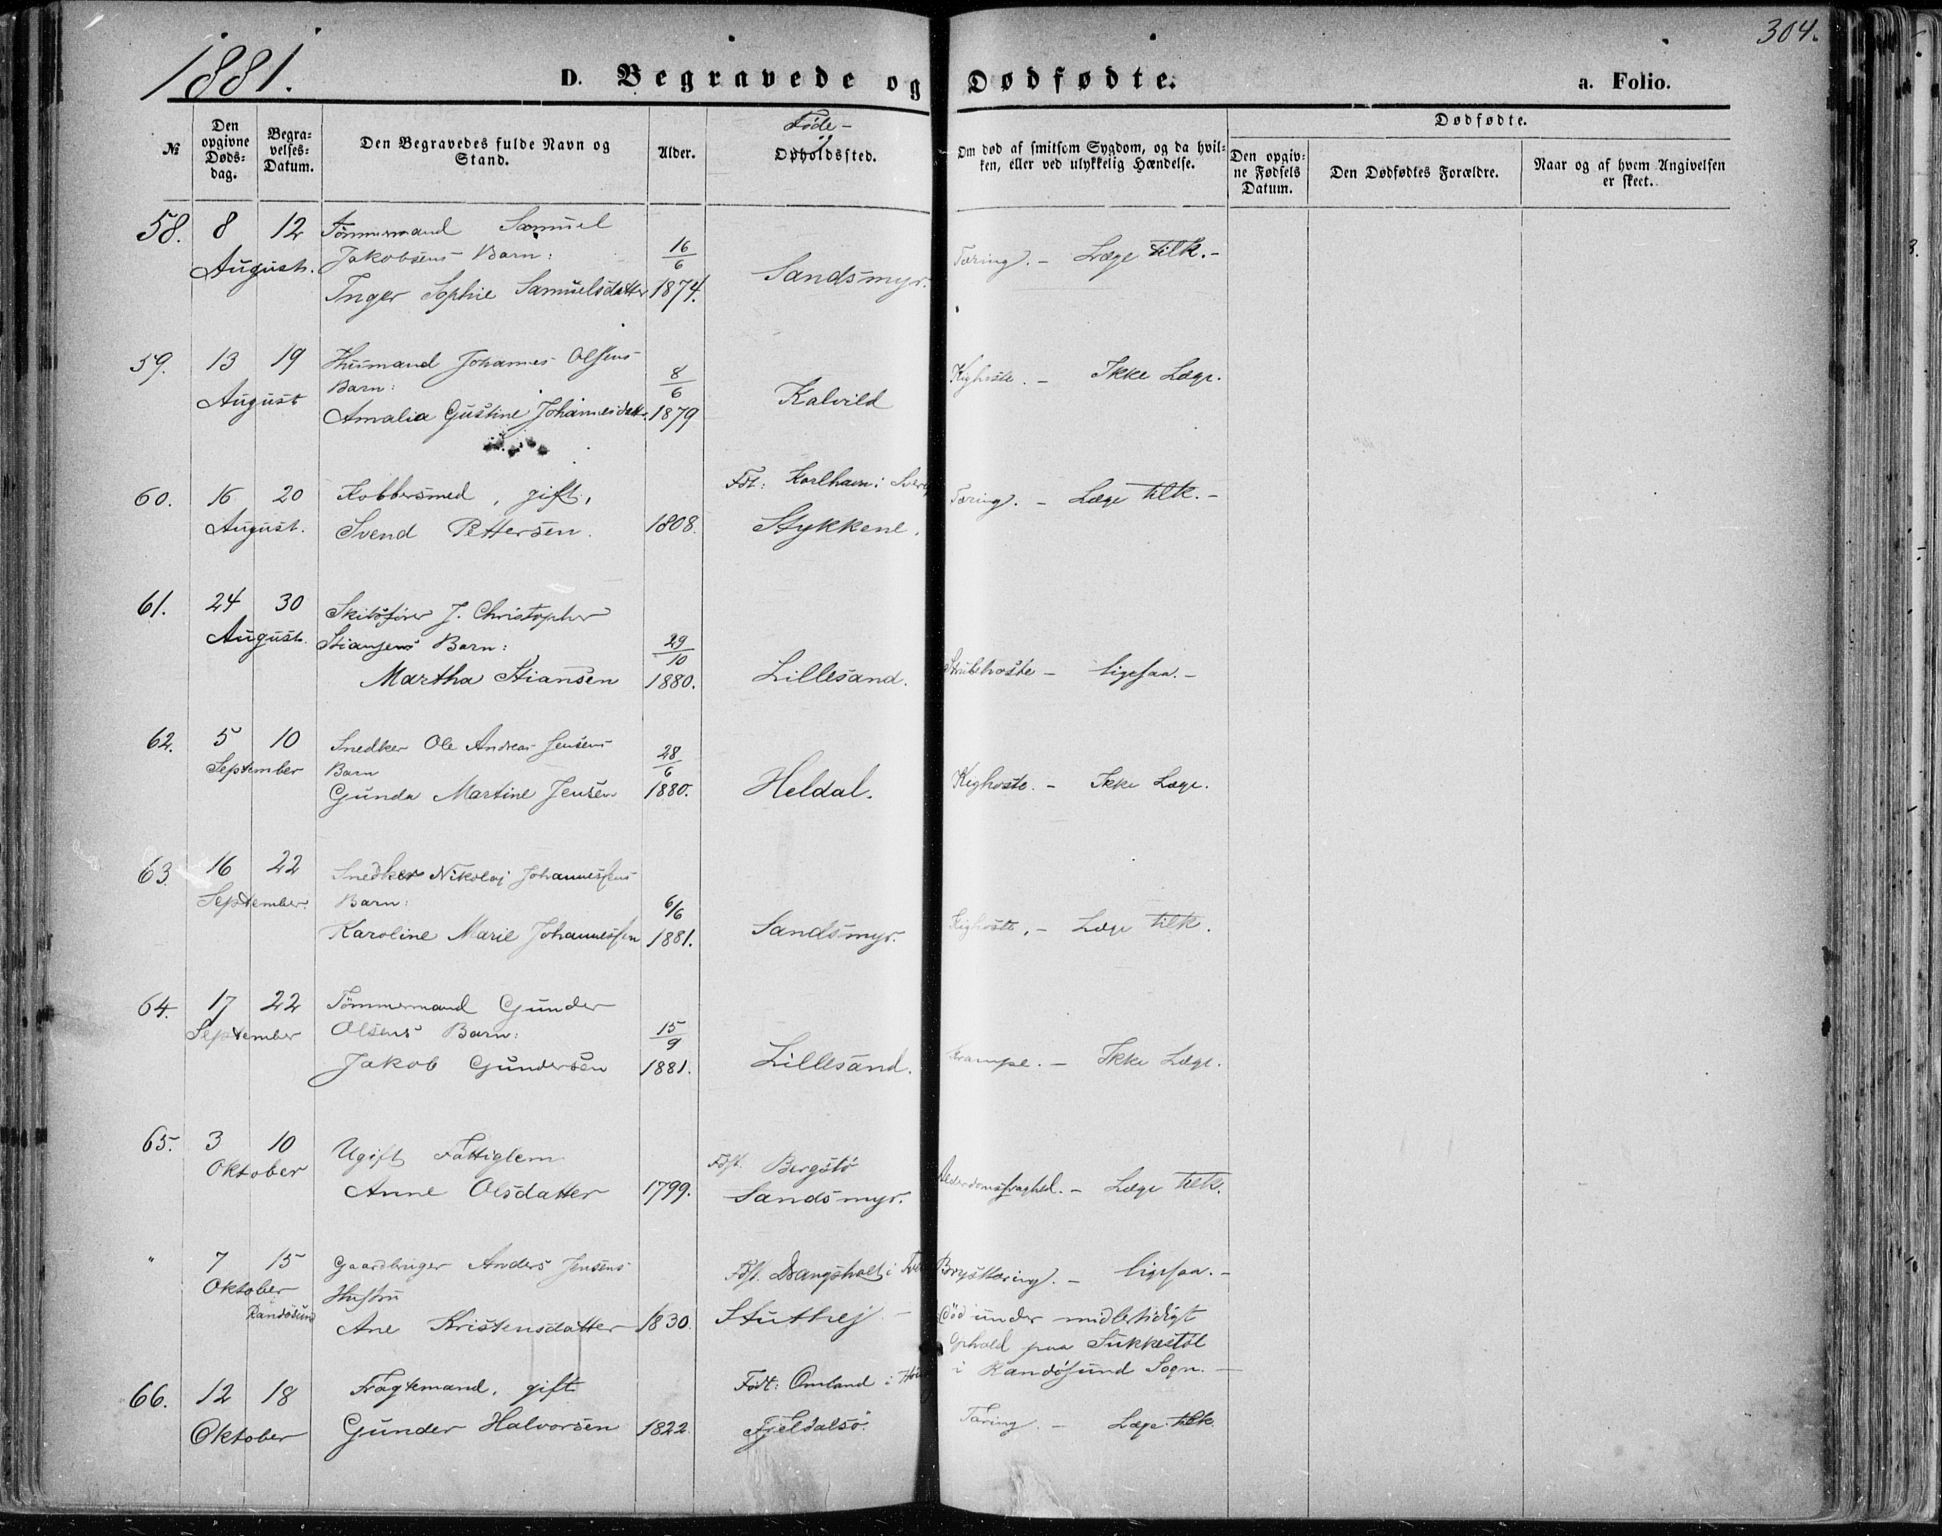 1881.
304.
D. Begravede og Dødfødte.
a. Folio.
№
Den opgivne Døds-dag.
Begra-velses-Datum.
Den Begravedes fulde Navn og Stand.
Alder.
Føde- og
Opholdssted.
Om død af smitsom Sygdom, og da hvil-ken, eller ved ulykkelig Hændelse.
Dødfødte.
Den opgiv-ne Fødsels Datum.
Den Dødfødtes Forældre.
Naar og af hvem Angivelsen er skeet.
58. 8 12 Tømmermand Samuel
August. Jakobsens Barn: 16/6 Tæring. - Læge tilk. -
Inger Sophie Samuelsdatter 1874. Sandsmyr.
59. 13 19 Husmand Johannes Olsens
Barn: 8/6 Kighoste. - Ikke Læge.
August Amalia Gustine Johannesdatter 1879 Kalvild
60. 16 20 Kobbersmed, gift, Fdt: Karlhavn i Tæring. - Læge tilk. -
August. Svend Pettersen. 1808. Stykkene.
61. 24 30 Skibsfører J. Christopher
August. Stiansens Barn: 29/10
Martha Stiansen 1880. Lillesand. Strubehoste - ligesaa. -
62. 5 10 Snedker Ole Andreas Jensens
September Barn 28/6
Gunda Martine Jensen 1880. Heldal. Kighoste. - Ikke Læge.
63. 16 22 Snedker Nikolaj Johannessens
September. Barn: 6/6
Karoline Marie Johannessen 1881. Sandsmyr. Kighoste. - Læge tilk.
64. 17 22 Tømmermand Gunder
September Olsens Barn: 15/9
Jakob Gundersen 1881. Lillesand. Krampe. - Ikke Læge.
65. 3 10 Ugift Fattiglem Født. Bergstø
Oktober Anne Olsdatter 1799. Sandsmyr. Alderdomssvaghed. - Læge tilk.
" 7 15 Gaardbruger Anders Jensens Født. Drangsholt i Brysttæring. - ligesaa. -
Oktober Hustru
Randøsund Ane Kristensdatter 1830. Stuthej - Død under midlertidigt
Ophold paa Sukkestøl
i Randøsund Sogn. -
66. 12 18 Fragtemand, gift Født: Omland i
Oktober Gunder Halvorsen 1822. Fjeldalsø. Tæring. - Læge tilk.